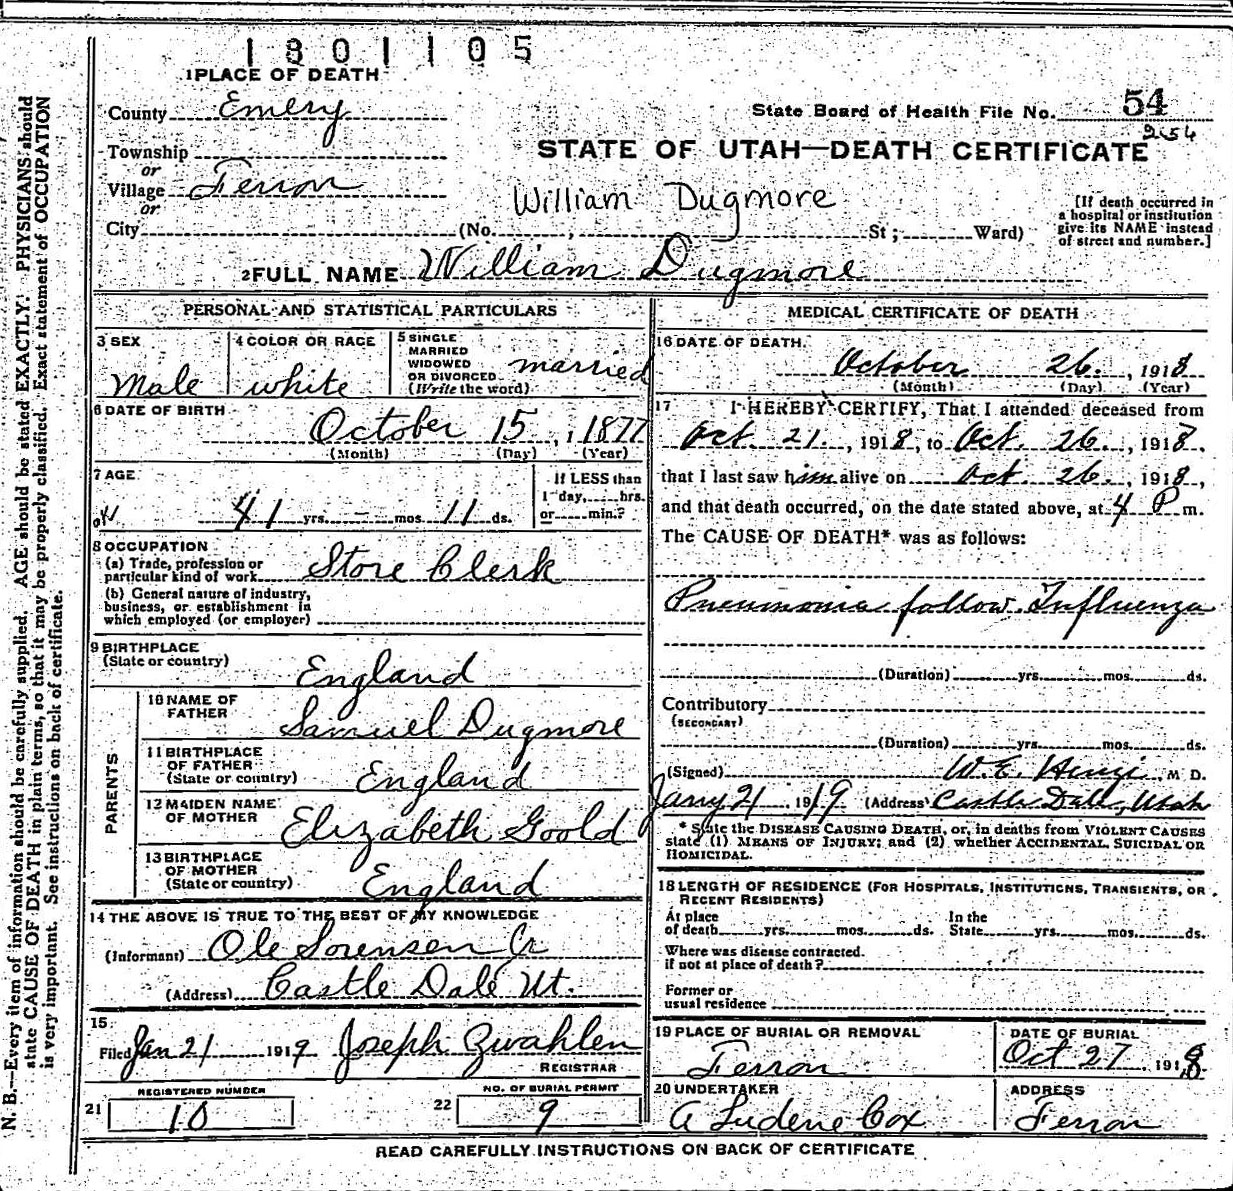 1801105
1 PLACE OF DEATH
County Emery
State Board of Health File No. 54
254
Township
or
Village Ferron
or
City (No. , St; Ward)
STATE OF UTAH—DEATH CERTIFICATE
William Dugmore
[If death occurred in
a hospital or institution
give its NAME instead
of street and number.]
2 FULL NAME William Dugmore
PERSONAL AND STATISTICAL PARTICULARS
3 SEX
Male
4 COLOR OR RACE
white
5 SINGLE
MARRIED
WIDOWED
OR DIVORCED
(Write the word)
married
6 DATE OF BIRTH
October 15, 1877
(Month) (Day) (Year)
7 AGE
41 yrs. - mos. 11 ds.
If LESS than
1 day, hrs.
or min.?
8 OCCUPATION
(a) Trade, profession or
particular kind of work Store Clerk
(b) General nature of industry,
business, or establishment in
which employed (or employer)
9 BIRTHPLACE
(State or country)
England
PARENTS
10 NAME OF
FATHER
Samuel Dugmore
11 BIRTHPLACE
OF FATHER
(State or country)
England
12 MAIDEN NAME
OF MOTHER
Elizabeth Goold
13 BIRTHPLACE
OF MOTHER
(State or country)
England
14 THE ABOVE IS TRUE TO THE BEST OF MY KNOWLEDGE
(Informant) Ole Sorensen Jr
(Address) Castle Dale Ut.
15
Filed Jan 21 1919 Joseph Zwahlen
REGISTRAR
REGISTERED NUMBER
21 10
NO. OF BURIAL PERMIT
22 9
MEDICAL CERTIFICATE OF DEATH
16 DATE OF DEATH.
October 26, 1918
(Month) (Day) (Year)
17 I HEREBY CERTIFY, That I attended deceased from
Oct. 21, 1918, to Oct. 26, 1918,
that I last saw him alive on Oct 26, 1918,
and that death occurred, on the date stated above, at 4 P m.
The CAUSE OF DEATH* was as follows:
Pneumonia follow. Influenza
(Duration) yrs. mos. ds.
Contributory
(SECONDARY)
(Duration) yrs. mos. ds.
(Signed) W. E. , M D.
Jany 21 1919 (Address) Castle Dale, Utah
* State the DISEASE CAUSING DEATH, or, in deaths from VIOLENT CAUSES
state (1) MEANS OF INJURY; and (2) whether ACCIDENTAL, SUICIDAL OR
HOMICIDAL.
18 LENGTH OF RESIDENCE (FOR HOSPITALS, INSTITUTIONS, TRANSIENTS, OR
RECENT RESIDENTS)
At place
of death yrs. mos. ds.
In the
State yrs. mos. ds.
Where was disease contracted.
if not at place of death?
Former or
usual residence
19 PLACE OF BURIAL OR REMOVAL
Ferron
DATE OF BURIAL
Oct 27, 1918
20 UNDERTAKER
A Ludene Cox
ADDRESS
Ferron
READ CAREFULLY INSTRUCTIONS ON BACK OF CERTIFICATE
N. B.—Every item of information should be carefully supplied. AGE should be stated EXACTLY. PHYSICIANS should
state CAUSE OF DEATH in plain terms, so that it may be properly classified. Exact statement of OCCUPATION
is very important. See instructions on back of certificate.